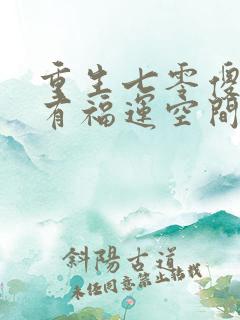 重生七零傻
有福運空間
斜陽古道
未經同意禁止轉載